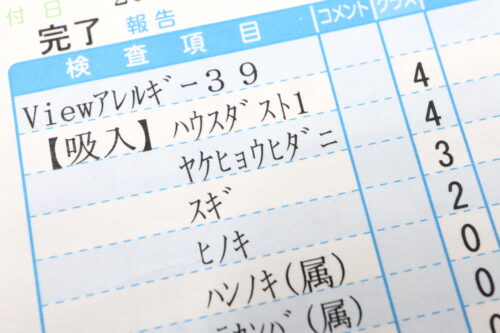 付日 20
完了 報告
検査項目 コメント クラス
Viewｱﾚﾙｷﾞｰ39
【吸入】ﾊｳｽﾀﾞｽﾄ1 4
ﾔｹﾋｮｳﾋﾀﾞﾆ 4
ｽｷﾞ 3
ﾋﾉｷ 2
ﾊﾝﾉｷ(属) 0
ｶﾝﾊﾞ(属) 0